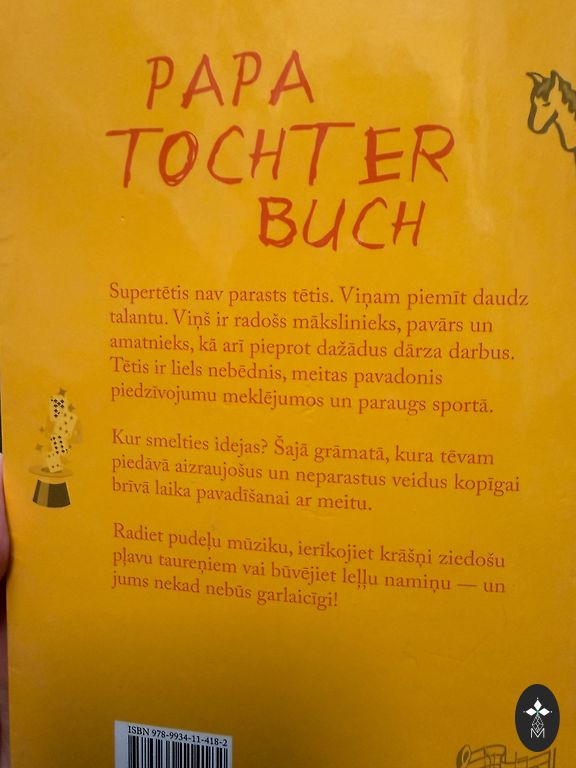 PAPA
TOCHTER
BUCH
Supertētis nav parasts tētis. Viņam piemīt daudz
talantu. Viņš ir radošs mākslinieks, pavārs un
amatnieks, kā arī pieprot dažādus dārza darbus.
Tētis ir liels nebēdnis, meitas pavadonis
piedzīvojumu meklējumos un paraugs sportā.
Kur smelties idejas? Šajā grāmatā, kura tēvam
piedāvā aizraujošus un neparastus veidus kopīgai
brīvā laika pavadīšanai ar meitu.
Radiet pudeļu mūziku, ierīkojiet krāšņi ziedošu
pļavu taureņiem vai būvējiet leļļu namiņu — un
jums nekad nebūs garlaicīgi!
ISBN 978-9934-11-418-2
M